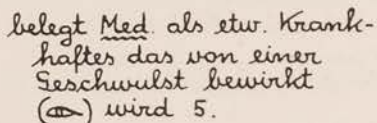 belegt Med. als etw. Krank-
haftes das von einer
Geschwulst bewirkt
() wird 5.